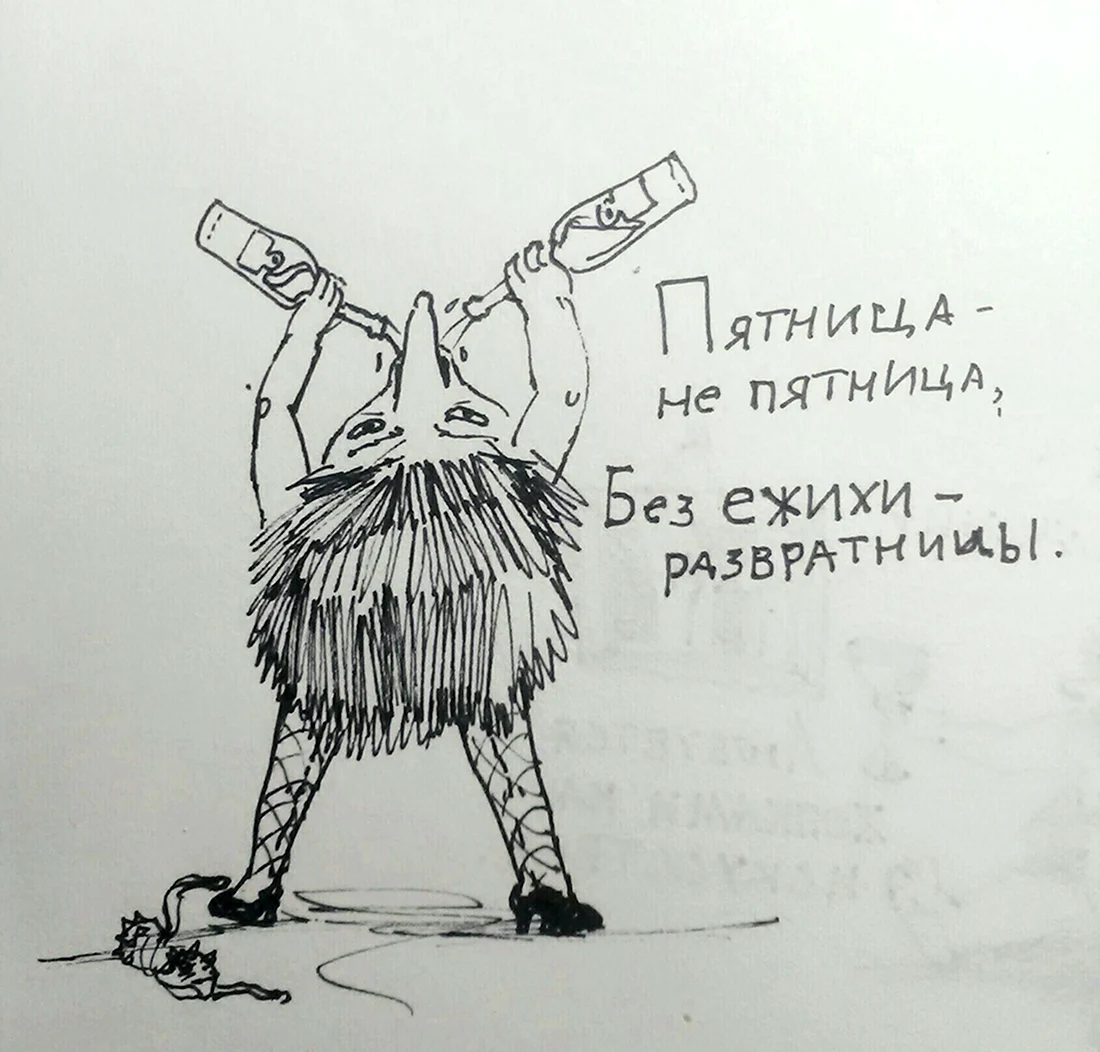 Пятница -
не пятница,
Без ежихи -
развратницы.